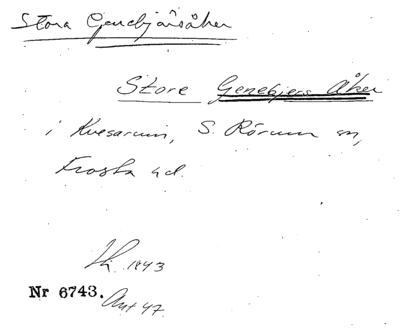 Stora Genebjärsåker
Store Genebjers Åker
i Kvesarum, S. Rörum sn,
Frosta hd.
1843
Nr 6743.
Ant 47.